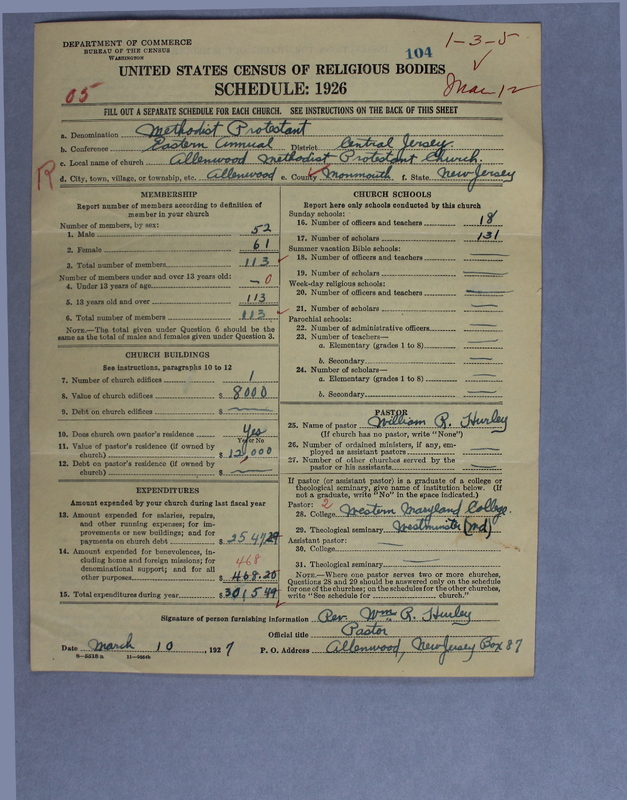 DEPARTMENT OF COMMERCE
BUREAU OF THE CENSUS
WASHINGTON
104
1-3-5
Mar 12
UNITED STATES CENSUS OF RELIGIOUS BODIES
SCHEDULE: 1926
05
FILL OUT A SEPARATE SCHEDULE FOR EACH CHURCH. SEE INSTRUCTIONS ON THE BACK OF THIS SHEET
a. Denomination Methodist Protestant
b. Conference Eastern Annual District Central Jersey
c. Local name of church Allenwood Methodist Protestant Church.
R
d. City, town, village, or township, etc. Allenwood e. County Monmouth f. State New Jersey
MEMBERSHIP
Report number of members according to definition of
member in your church
Number of members, by sex:
1. Male 52
2. Female 61
3. Total number of members 113
Number of members under and over 13 years old:
4. Under 13 years of age — 0
5. 13 years old and over 113
6. Total number of members 113
NOTE.—The total given under Question 6 should be the
same as the total of males and females given under Question 3.
CHURCH BUILDINGS
See instructions, paragraphs 10 to 12
7. Number of church edifices 1
8. Value of church edifices $ 8000
9. Debt on church edifices $ —
10. Does church own pastor's residence Yes
Yes or No
11. Value of pastor's residence (if owned by
church) $ 12,000
12. Debt on pastor's residence (if owned by
church) $ —
EXPENDITURES
Amount expended by your church during last fiscal year
13. Amount expended for salaries, repairs,
and other running expenses; for im-
provements or new buildings; and for
payments on church debt $ 2547.29
14. Amount expended for benevolences, in-
cluding home and foreign missions; for 468
denominational support; and for all
other purposes $ 468.20
15. Total expenditures during year $ 3015.49
CHURCH SCHOOLS
Report here only schools conducted by this church
Sunday schools:
16. Number of officers and teachers 18
17. Number of scholars 131
Summer vacation Bible schools:
18. Number of officers and teachers —
19. Number of scholars —
Week-day religious schools:
20. Number of officers and teachers —
21. Number of scholars —
Parochial schools:
22. Number of administrative officers —
23. Number of teachers—
a. Elementary (grades 1 to 8) —
b. Secondary —
24. Number of scholars—
a. Elementary (grades 1 to 8) —
b. Secondary —
PASTOR
25. Name of pastor William R. Hurley
(If church has no pastor, write "None")
26. Number of ordained ministers, if any, em-
ployed as assistant pastors —
27. Number of other churches served by the
pastor or his assistants —
If pastor (or assistant pastor) is a graduate of a college or
theological seminary, give name of institution below. (If
not a graduate, write "No" in the space indicated.)
Pastor: 2
28. College Western Maryland College.
29. Theological seminary Westminster (Md)
Assistant pastor:
30. College —
31. Theological seminary —
NOTE.—Where one pastor serves two or more churches,
Questions 28 and 29 should be answered only on the schedule
for one of the churches; on the schedules for the other churches,
write "See schedule for church."
Signature of person furnishing information Rev. Wm R. Hurley
Official title Pastor
Date March 10, 1927 P. O. Address Allenwood, New Jersey Box 87